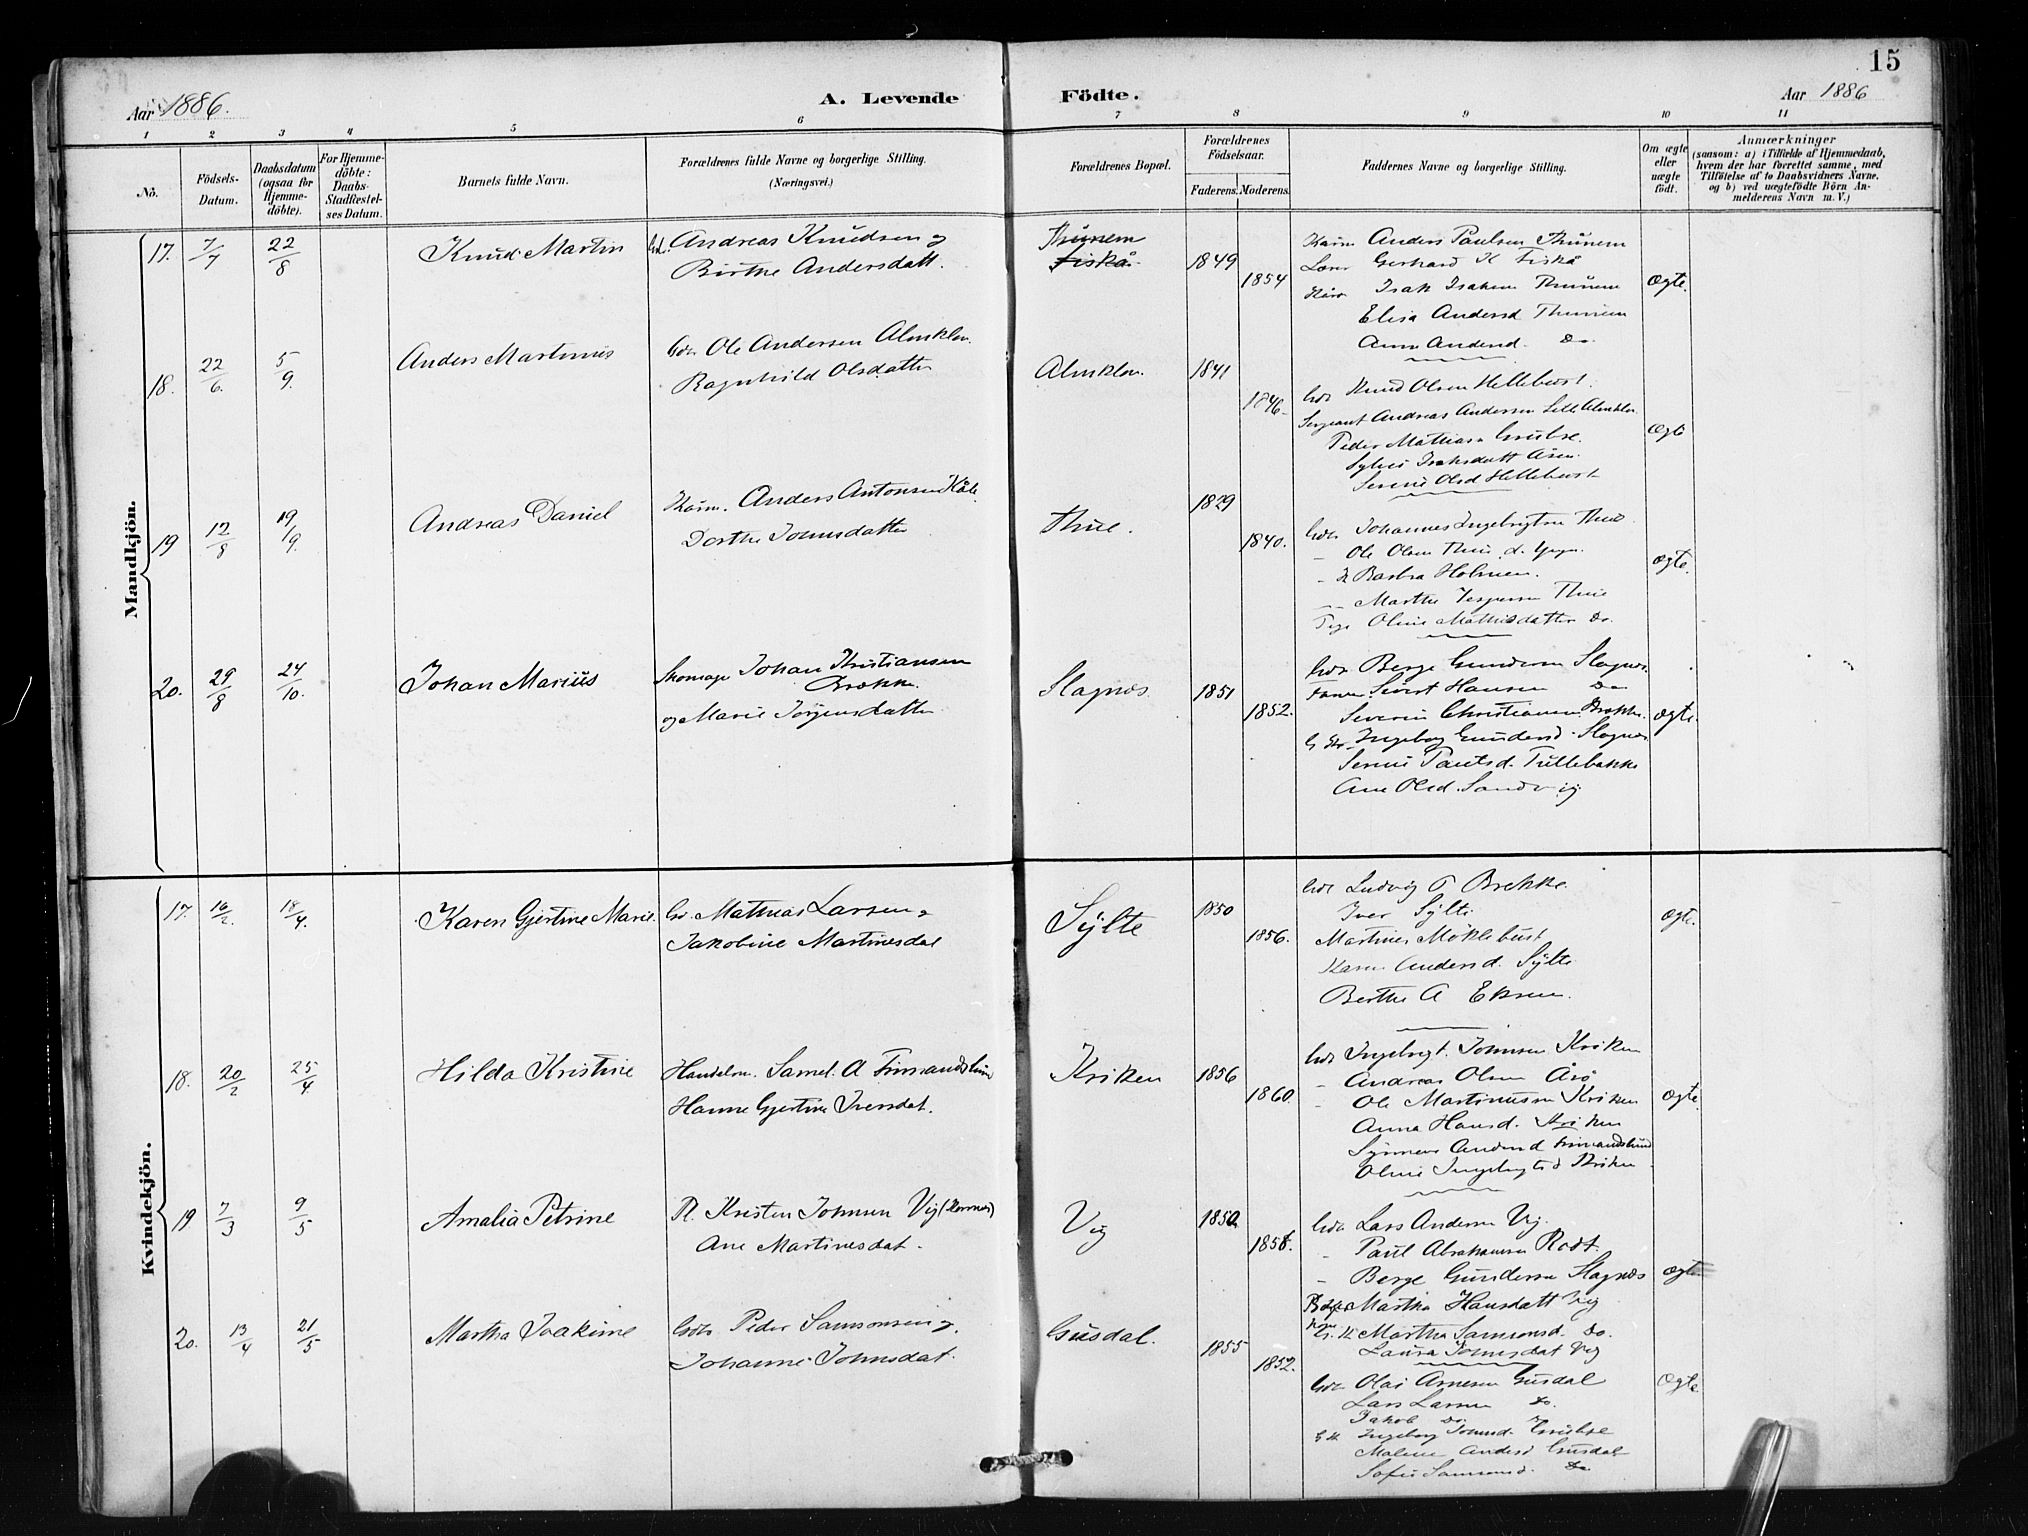 15
Aar 1886.
A. Levende Födte.
Aar 1886
1 2 3 4 5 6 7 8 9 10 11
No.
Födsels-Datum.
Daabsdatum (ogsaa for Hjemme-döbte).
For Hjemme-döbte: Daabs-Stadfæstel-ses Datum.
Barnets fulde Navn.
Forældrenes fulde Navne og borgerlige Stilling.
(Næringsvei.)
Forældrenes Bopæl.
Forældrenes Födselsaar.
Faderens. Moderens.
Faddernes Navne og borgerlige Stilling.
Om ægte eller uægte födt.
Anmærkninger
(saasom: a) i Tilfælde af Hjemmedaab, hvem der har forrettet samme, med Tilföielse af to Daabsvidners Navne, og b) ved uægtefödte Börn An-melderens Navn m. V.)
Mandkjön.
17. 7/7 22/8 Knud Martin
Andreas Knudsen og
Birthe Andersdatt.
Thunem
Fiskå
1849
1854
Anders Paulsen Thunem
Gerhard K Fiskå
Isak Isaksen Thunem
Elisa Andersd Thunem
Anne Andersd. Do.
Ægte.
18. 22/6. 5/9. Anders Martinus
Gdr. Ole Andersen Almklov.
Ragnhild Olsdatter
Almklov.
1841
1846.
Gdr. Knud Olsen Hellebust.
Sergeant Andreas Andersen Lille Almklov
Peder Mathias Grubse.
Sylvi Isaksdatt Åsen.
Serine Olsd Hellebust
Ægte
19 12/8 19/9. Andreas Daniel
Anders Antonsen
Dorthe Johnsdatter
Thue.
1829
1840.
Gdr. Johannes Ingebrigtsen Thue
Ole Olsen Thue
Barbra Holmen.
Marthe Jespersen Thue
Pige Oline Mathisdatter Do.
Ægte.
20. 29/8 24/10. Johan Marius
Skomager Johan Kristiansen
Brekke
og Marie Jørgensdatter
Slagnæs
1851
1852.
Gdr. Berge Gundersen Slagnæs
Sivert Hansen Do
Severin Christiansen Brekke.
Ingeborg Gundersd. Slagnæs
Serine Paulsd. Tullebakke
Ane Olsd. Sandvig
Ægte.
Kvindekjön.
17. 16/2. 18/4. Karen Gjertine Marie.
Gdr. Mathias Larsen og
Jakobine Martinesdat
Sylte
1850
1856.
Gdr. Ludvig T Brekke.
Iver Sylte
Martines Møklebust
Karen Andersd. Sylte
Berthe A Eksen.
Ægte.
18. 20/2 25/4. Hilda Kristine
Handelsm. Samel. A Finnandslund
Hanne Gjertine Iversdat.
Kriken
1856
1860.
Gdr. Ingebrigt. Johnsen Kriken
Andreas Olsen Årö
Ole Martinussen Kriken
Anna Hansd. Kriken
Andersd Finnandslund
Oline Ingebrigtsd Kriken
Ægte.
19 7/3 9/5 Amalia Petrine
Pl. Kristen Johnsen Vig
Ane Martinesdat.
Vig
1850
1858.
Gdr. Lars Andersen Vig.
Paul Abrahamsen Rodt.
Berge Gundersen Slagnæs
Martha Hansdatt Vig
Martha Samsonsd. Do.
Laura Johnesdat Vig
Ægte
20. 13/4 21/5 Martha Joakime
Gdr. Peder Samsonsen og.
Johanne Johnsdat.
Gusdal.
1855
1852.
Gdr. Olai Arnesen Gusdal
Lars Larsen Do.
Jakob Do.
Ingeborg Johnsd. Grubse
Malene Andersd Gusdal
Sofie Samsonsd. Do
Ægte